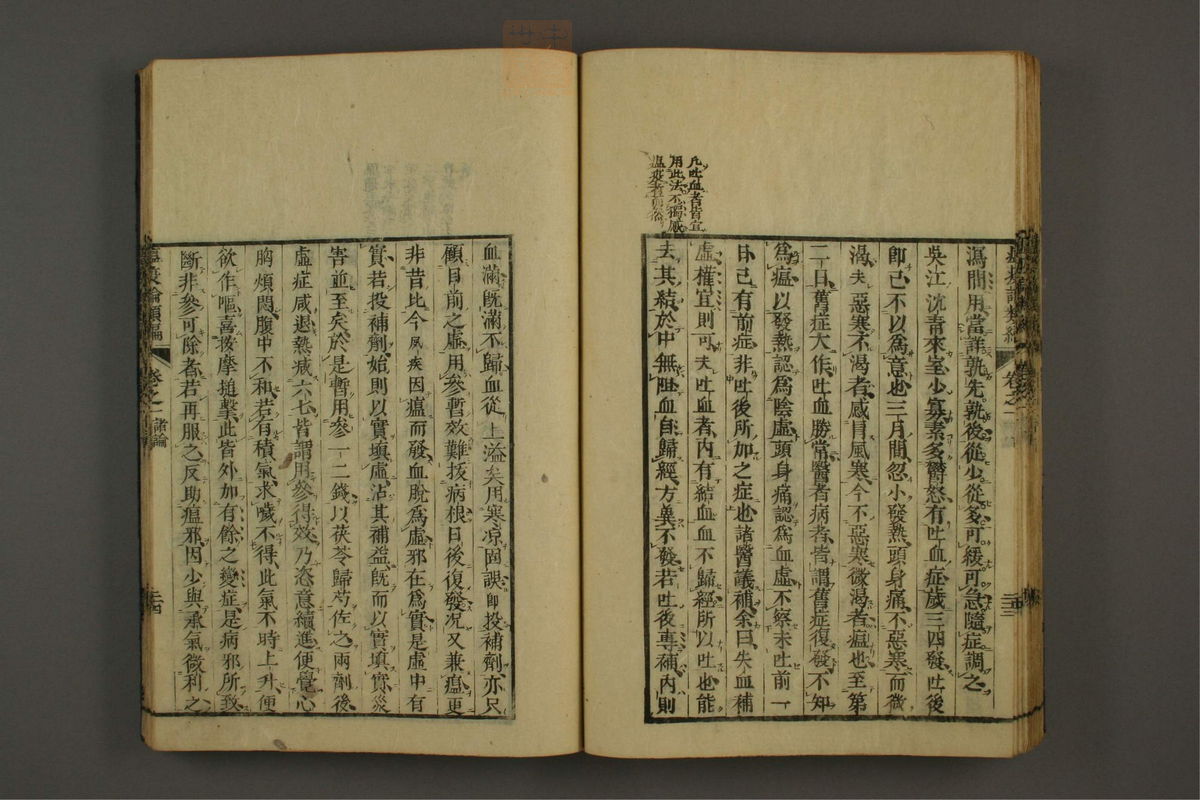 凡吐血者皆宜
用此法不獨感
瀉間用當詳孰先孰後從少從多可緩可急隨症調之
吳江沈青來室少寡素多鬱怒有吐血症歲三四發吐後
即已不以為意也三月間忽小發熱頭身痛不惡寒而微
渴夫惡寒不渴者感冒風寒今不惡寒微渴者瘟也至第
二日舊症大作吐血勝常醫者病者皆謂舊症復發不知
為瘟以發熱認為陰虛頭身痛認為血虛不察未吐前一
日已有前症非吐後所加之症也諸醫議補余曰失血補
虛權宜則可夫吐血者內有結血血不歸經所以吐也能
去其結於中無阻血自歸經方冀不發若吐後專補內則
血滿既滿不歸血從上溢矣用寒凉固誤即投補劑亦只
顧目前之虛用參暫效難拔病根日後復發況又兼瘟更
非昔比今風疾因瘟而發血脫為虛邪在為實是虛中有
實若投補劑始則以實填虛沾其補益既而以實填實災
害並至矣於是暫用參一二錢以茯苓歸芍佐之兩劑後
虛症咸退熱減六七皆謂用參得效乃恣意續進便覺心
胸煩悶腹中不和若有積氣求噦不得此氣不時上升便
欲作嘔喜按摩搥擊此皆外加有餘之變症是病邪所致
斷非參可除者若再服之反助瘟邪因少與承氣微利之
瘟疫論類編
卷之一
諸論
二十四